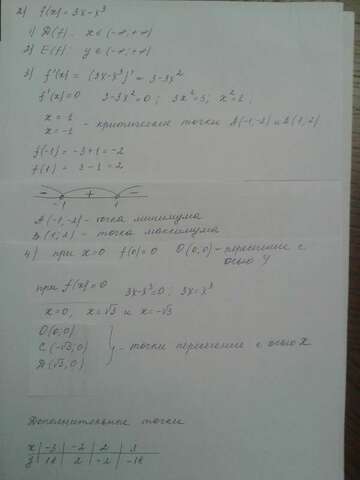 2) f(x) = 3x - x³
1) D(f): x ∈ (-∞; +∞)
2) E(f): y ∈ (-∞; +∞)
3) f'(x) = (3x - x³)' = 3 - 3x²
f'(x) = 0 3 - 3x² = 0; 3x² = 3; x² = 1;
x = 1
x = -1 - критические точки A(-1;-2) и B(1;2)
f(-1) = -3+1 = -2
f(1) = 3-1 = 2
- + -
-1 1
A(-1;-2) - точка минимума
B(1;2) - точка максимума
4) при x=0 f(0)=0 O(0;0) - пересечение с
осью y
при f(x)=0 3x-x³=0; 3x=x³
x=0, x=√3 и x=-√3
O(0;0)
C(-√3;0) - точки пересечение с осью x
D(√3;0)
Дополнительные точки
x | -3 | -2 | 2 | 3
y | 18 | 2 | -2 | -18